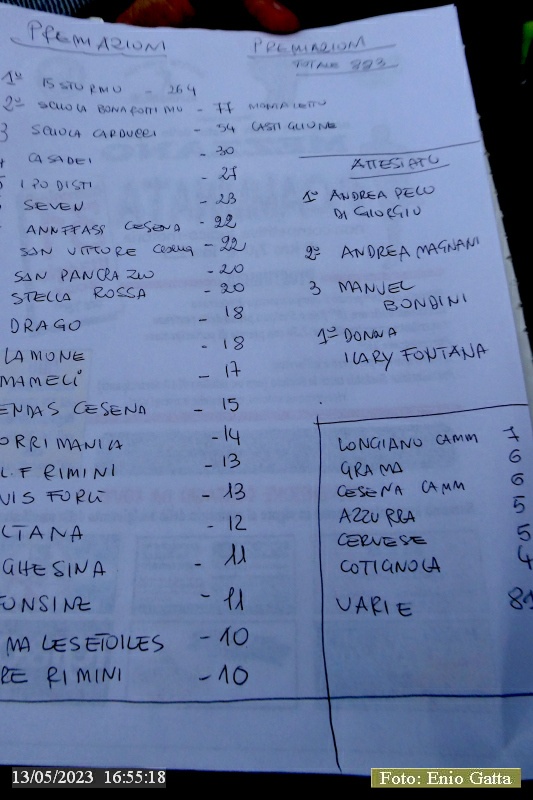 PREMIAZIONI
1° ISSTURMU - 264
2° SCUOLA BONAFORTI MU - 77 MOMALETTO
3 SCUOLA CARDUCCI - 54 CASTIGLIONE
CASADEI - 30
I PODISTI - 27
SEVEN - 23
ANNFFASS CESENA - 22
SAN VITTORE CESENA - 22
SAN PANCRAZIO - 20
STELLA ROSSA - 20
DRAGO - 18
LAMONE - 18
MAMELI - 17
ENDAS CESENA - 15
ORRIMANIA - 14
L.F RIMINI - 13
VIS FORLI - 13
LTANA - 12
GHESINA - 11
FONSINE - 11
MALESETOILES - 10
RE RIMINI - 10
PREMIAZIONI
TOTALE 883
ATTESTATO
1° ANDREA PELO
DI GIORGIO
2° ANDREA MAGNANI
3 MANUEL
BONDINI
1° DONNA
ILARY FONTANA
LONGIANO CAMM 7
GRAMA 6
CESENA CAMM 6
AZZURRA 5
CERVESE 5
COTIGNOLA 4
VARIE 81
13/05/2023 16:55:18
Foto: Enio Gatta